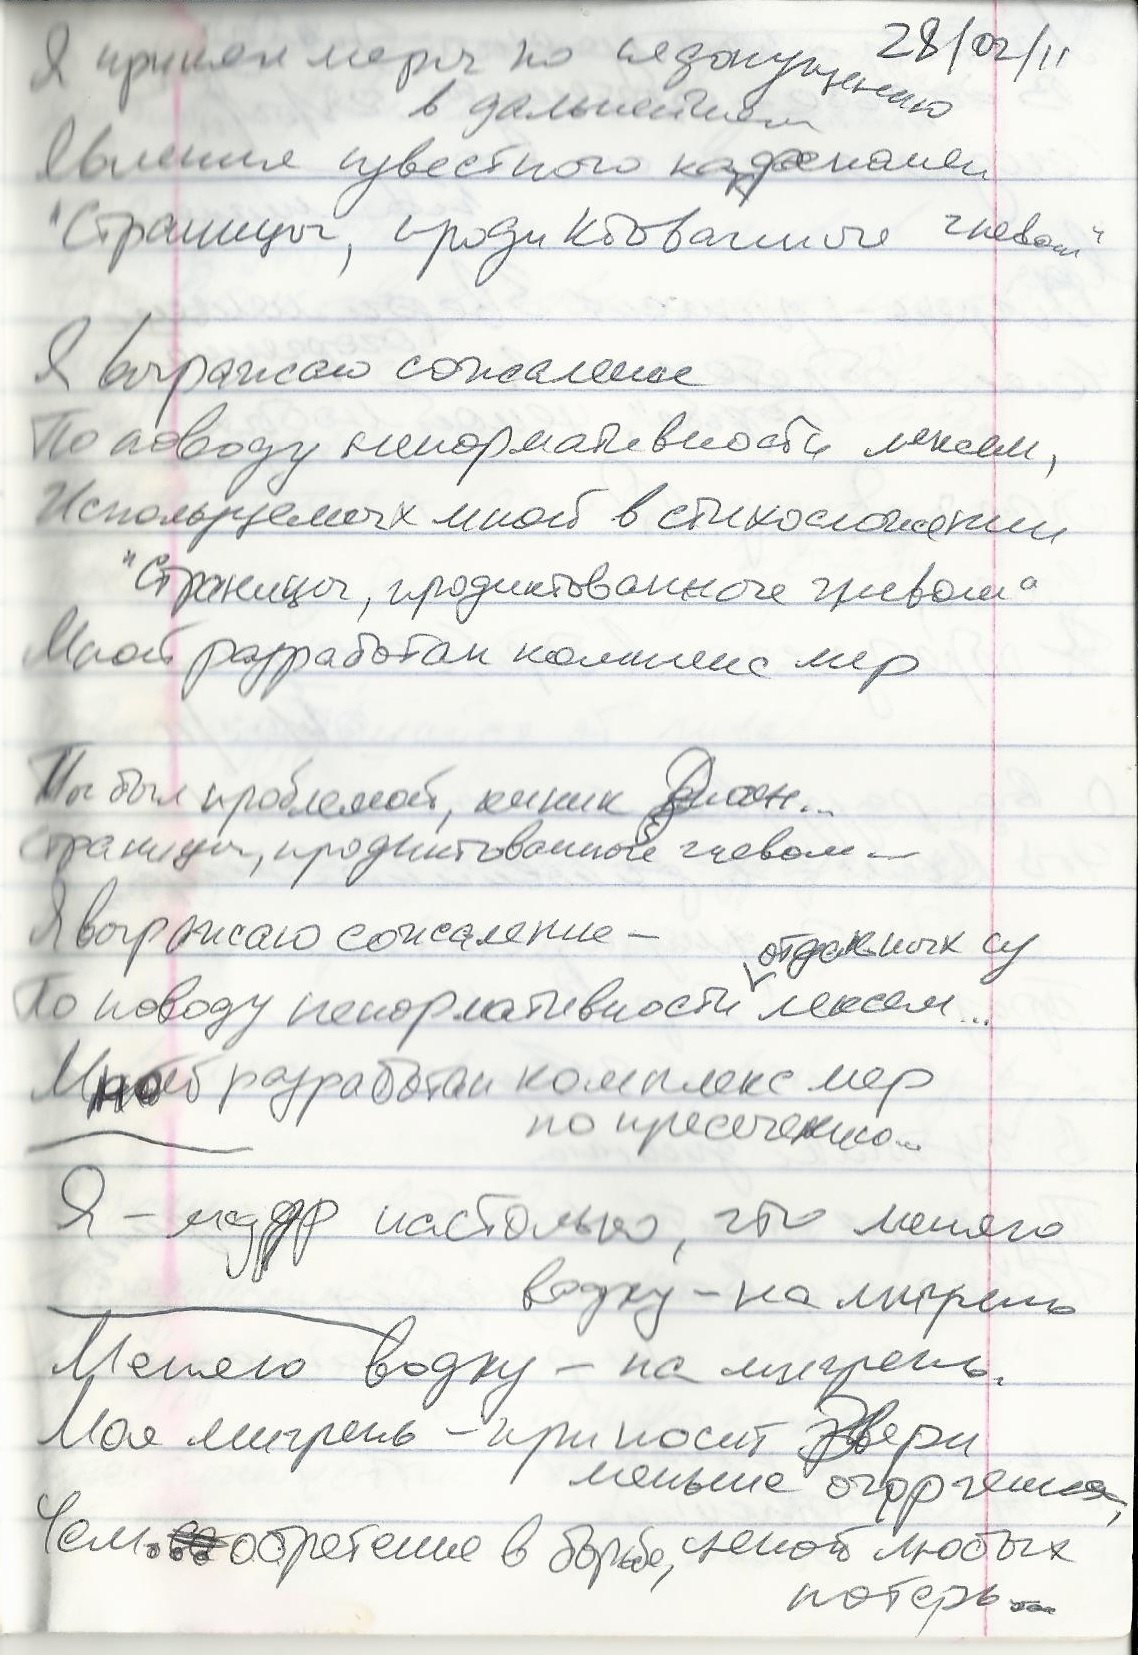 28/02/11
Я принял меры по недопущению
в дальнейшем
Явления известного каждому
"Страницы, продиктованные гневом"
Я выражаю сожаление
По поводу ненормативности лексем,
Используемых мной в стихосложении
"Страницы, продиктованные гневом"
Мной разработан комплекс мер
Ты был проблемой, киник Дион...
Страницы, продиктованные гневом —
Я выражаю сожаление —
отдельных су
По поводу ненормативности лексем...
Мной разработан комплекс мер
по пресечению...
Я – мудр настолько, что меняю
водку – на мигрень
Меняю водку – на мигрень.
Моя мигрень – приносит Эвери
меньше огорчения,
Чем... обретение в борьбе, ценой любых
потерь...